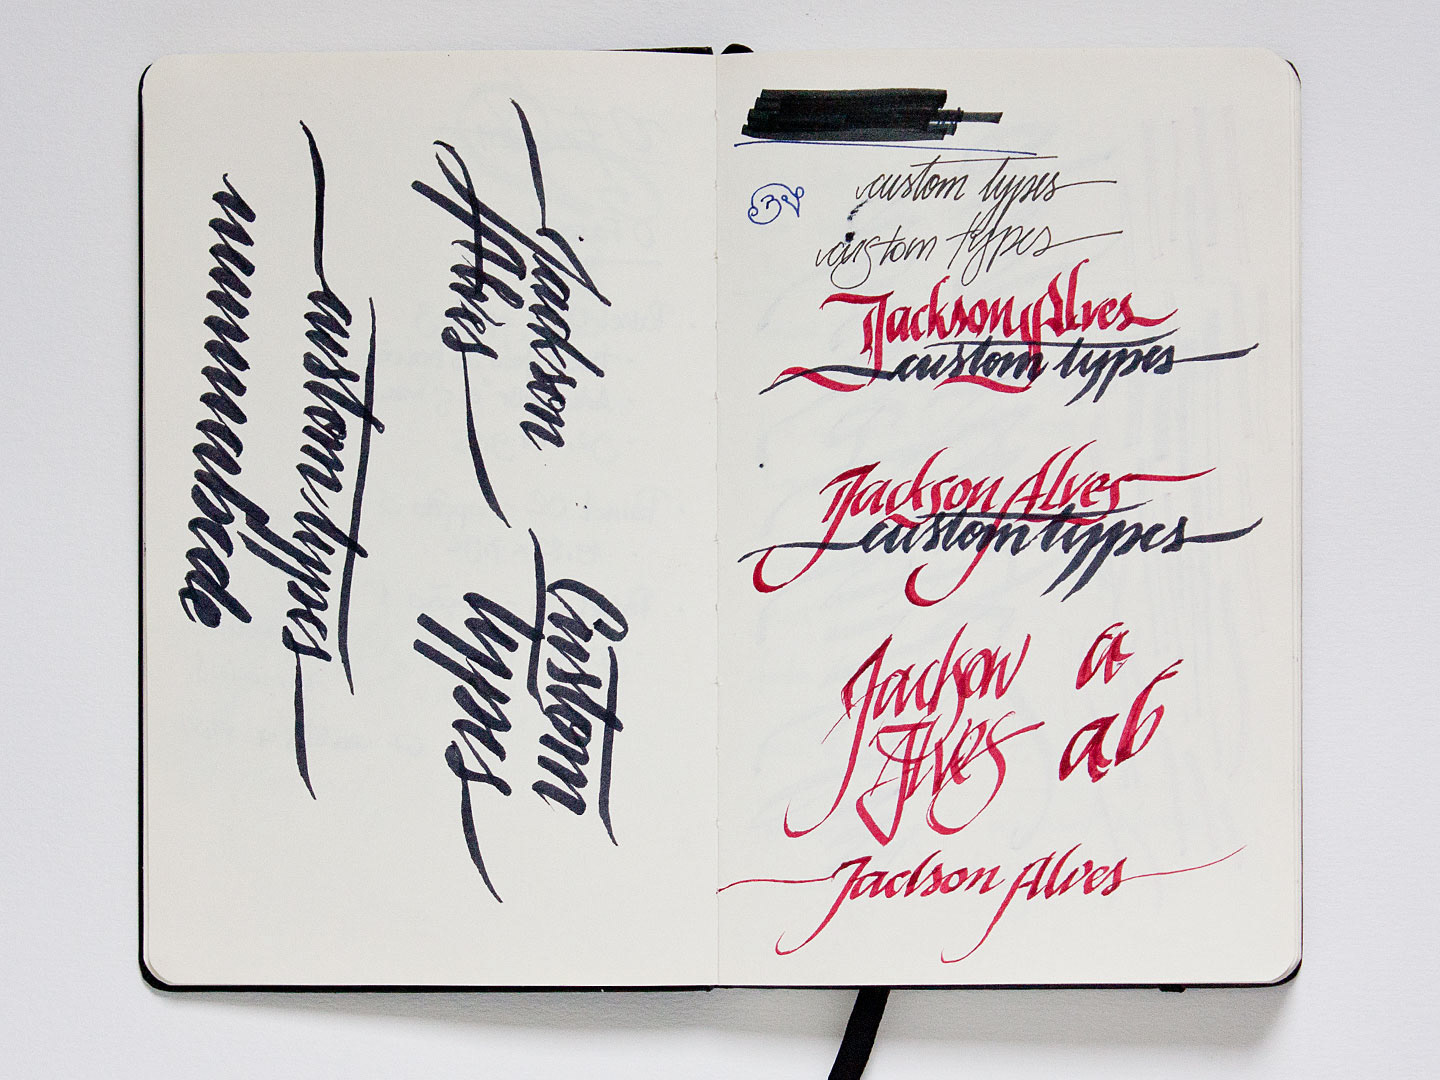 Jackson
Alves
Custom
types
custom types
custom types
custom types
Jackson Alves
custom types
Jackson Alves
custom types
Jackson
Alves
a
ab
Jackson Alves